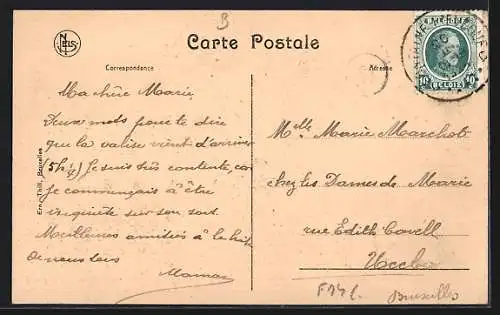 3
NELS
Carte Postale
Correspondance
Adresse
10 (BELGIË) 10
Ern. Thill, Bruxelles
Ma chère Marie
Deux mots pour te dire
que la valise vient d'arriver
(5h¼) Je suis très contente, car
je commençais à être
inquiète sur son sort
Meilleures amitiés à la
de nous tous
Maman
Melle Marie Marchot
chez les Dames de Marie
rue Edith Cavell
Uccle
F14
Bruxelles